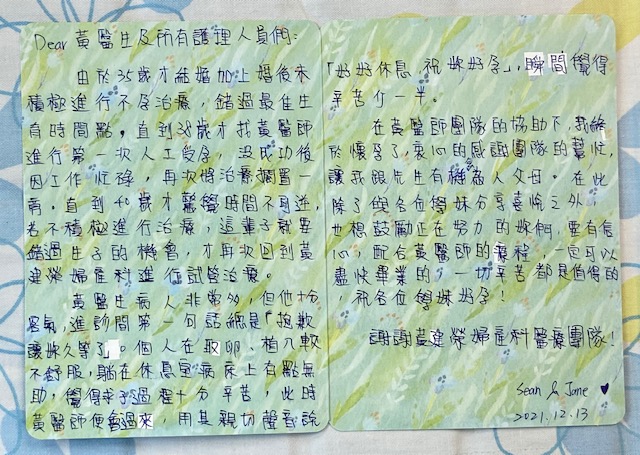 Dear 黃醫生及所有護理人員們:
由於35歲才結婚加上婚後未
積極進行不孕治療,錯過最佳生
育時間點。直到38歲才找黃醫師
進行第一次人工受孕,沒成功後
因工作忙碌,再次將治療擱置一
旁。直到40歲才驚覺時間不可逆,
若不積極進行治療,這輩子就要
錯過生子的機會,才再次回到黃
建榮婦產科進行試管治療。
黃醫生病人非常多,但他十分
客氣,進診間第一句話總是「抱歉
讓妳久等了」。個人在取卵、植入較
不舒服,躺在休息室病床上有點無
助,覺得求子過程十分辛苦,此時
黃醫師便會過來,用其親切聲音說
「好好休息,祝妳好孕」,瞬間覺得
辛苦少一半。
在黃醫師團隊的協助下,我終
於懷孕了,衷心的感謝團隊的幫忙,
讓我跟先生有機會為人父母。在此
除了與各位學妹分享喜悅之外,
也想鼓勵正在努力的妳們,要有信
心,配合黃醫師的療程,一定可以
盡快畢業的,一切辛苦都是值得的
,祝各位學妹好孕!
謝謝黃建榮婦產科醫療團隊!
Sean & Jane ♥
2021.12.13